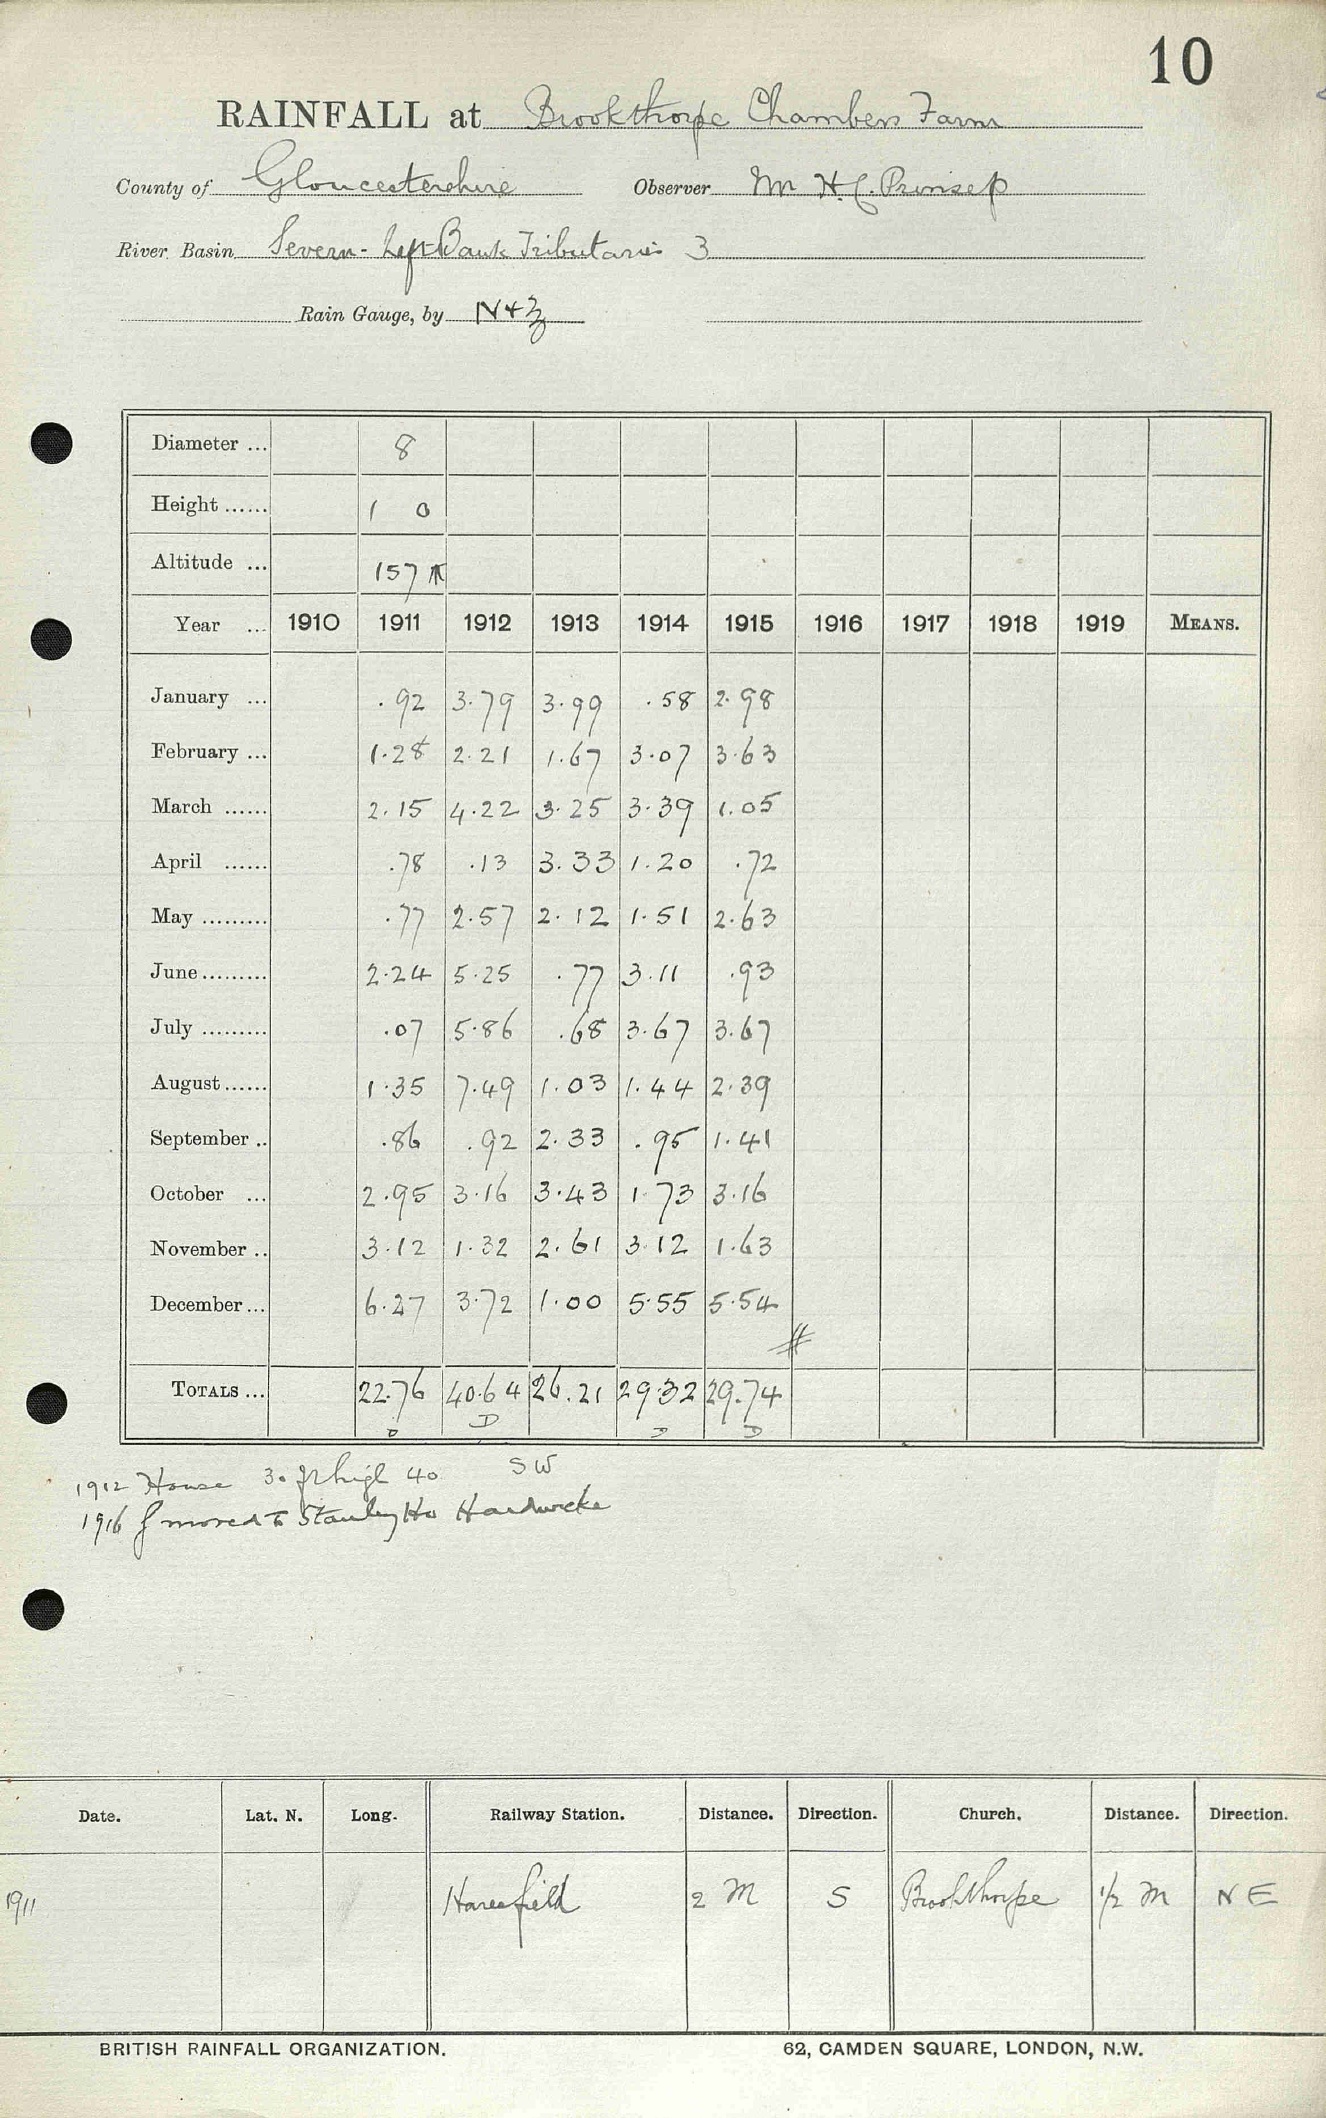 10
RAINFALL at Brookthorpe Chambers Farm
County of Gloucestershire Observer Mr H.C. Prinsep
River Basin Severn - Left Bank Tributaries 3
Rain Gauge, by N+Z
Diameter ... 8
Height ...... 1 0
Altitude ... 157
Year ... 1910 1911 1912 1913 1914 1915 1916 1917 1918 1919 MEANS.
January ... .92 3.79 3.99 .58 2.98
February ... 1.28 2.21 1.67 3.07 3.63
March ...... 2.15 4.22 3.25 3.39 1.05
April ...... .78 .13 3.33 1.20 .72
May ......... .77 2.57 2.12 1.51 2.63
June ......... 2.24 5.25 .77 3.11 .93
July ......... .07 5.86 .68 3.67 3.67
August ...... 1.35 7.49 1.03 1.44 2.39
September .. .86 .92 2.33 .95 1.41
October ... 2.95 3.16 3.43 1.73 3.16
November .. 3.12 1.32 2.61 3.12 1.63
December ... 6.27 3.72 1.00 5.55 5.54
#
TOTALS ... 22.76 40.64 26.21 29.32 29.74
D D D D
1912 House 30 ft high 40 SW
1916 g moved to Stanley Ho Hardwicke
Date. Lat. N. Long. Railway Station. Distance. Direction. Church. Distance. Direction.
1911 Haresfield 2 M S Brookthorpe 1/2 M NE
BRITISH RAINFALL ORGANIZATION. 62, CAMDEN SQUARE, LONDON, N.W.